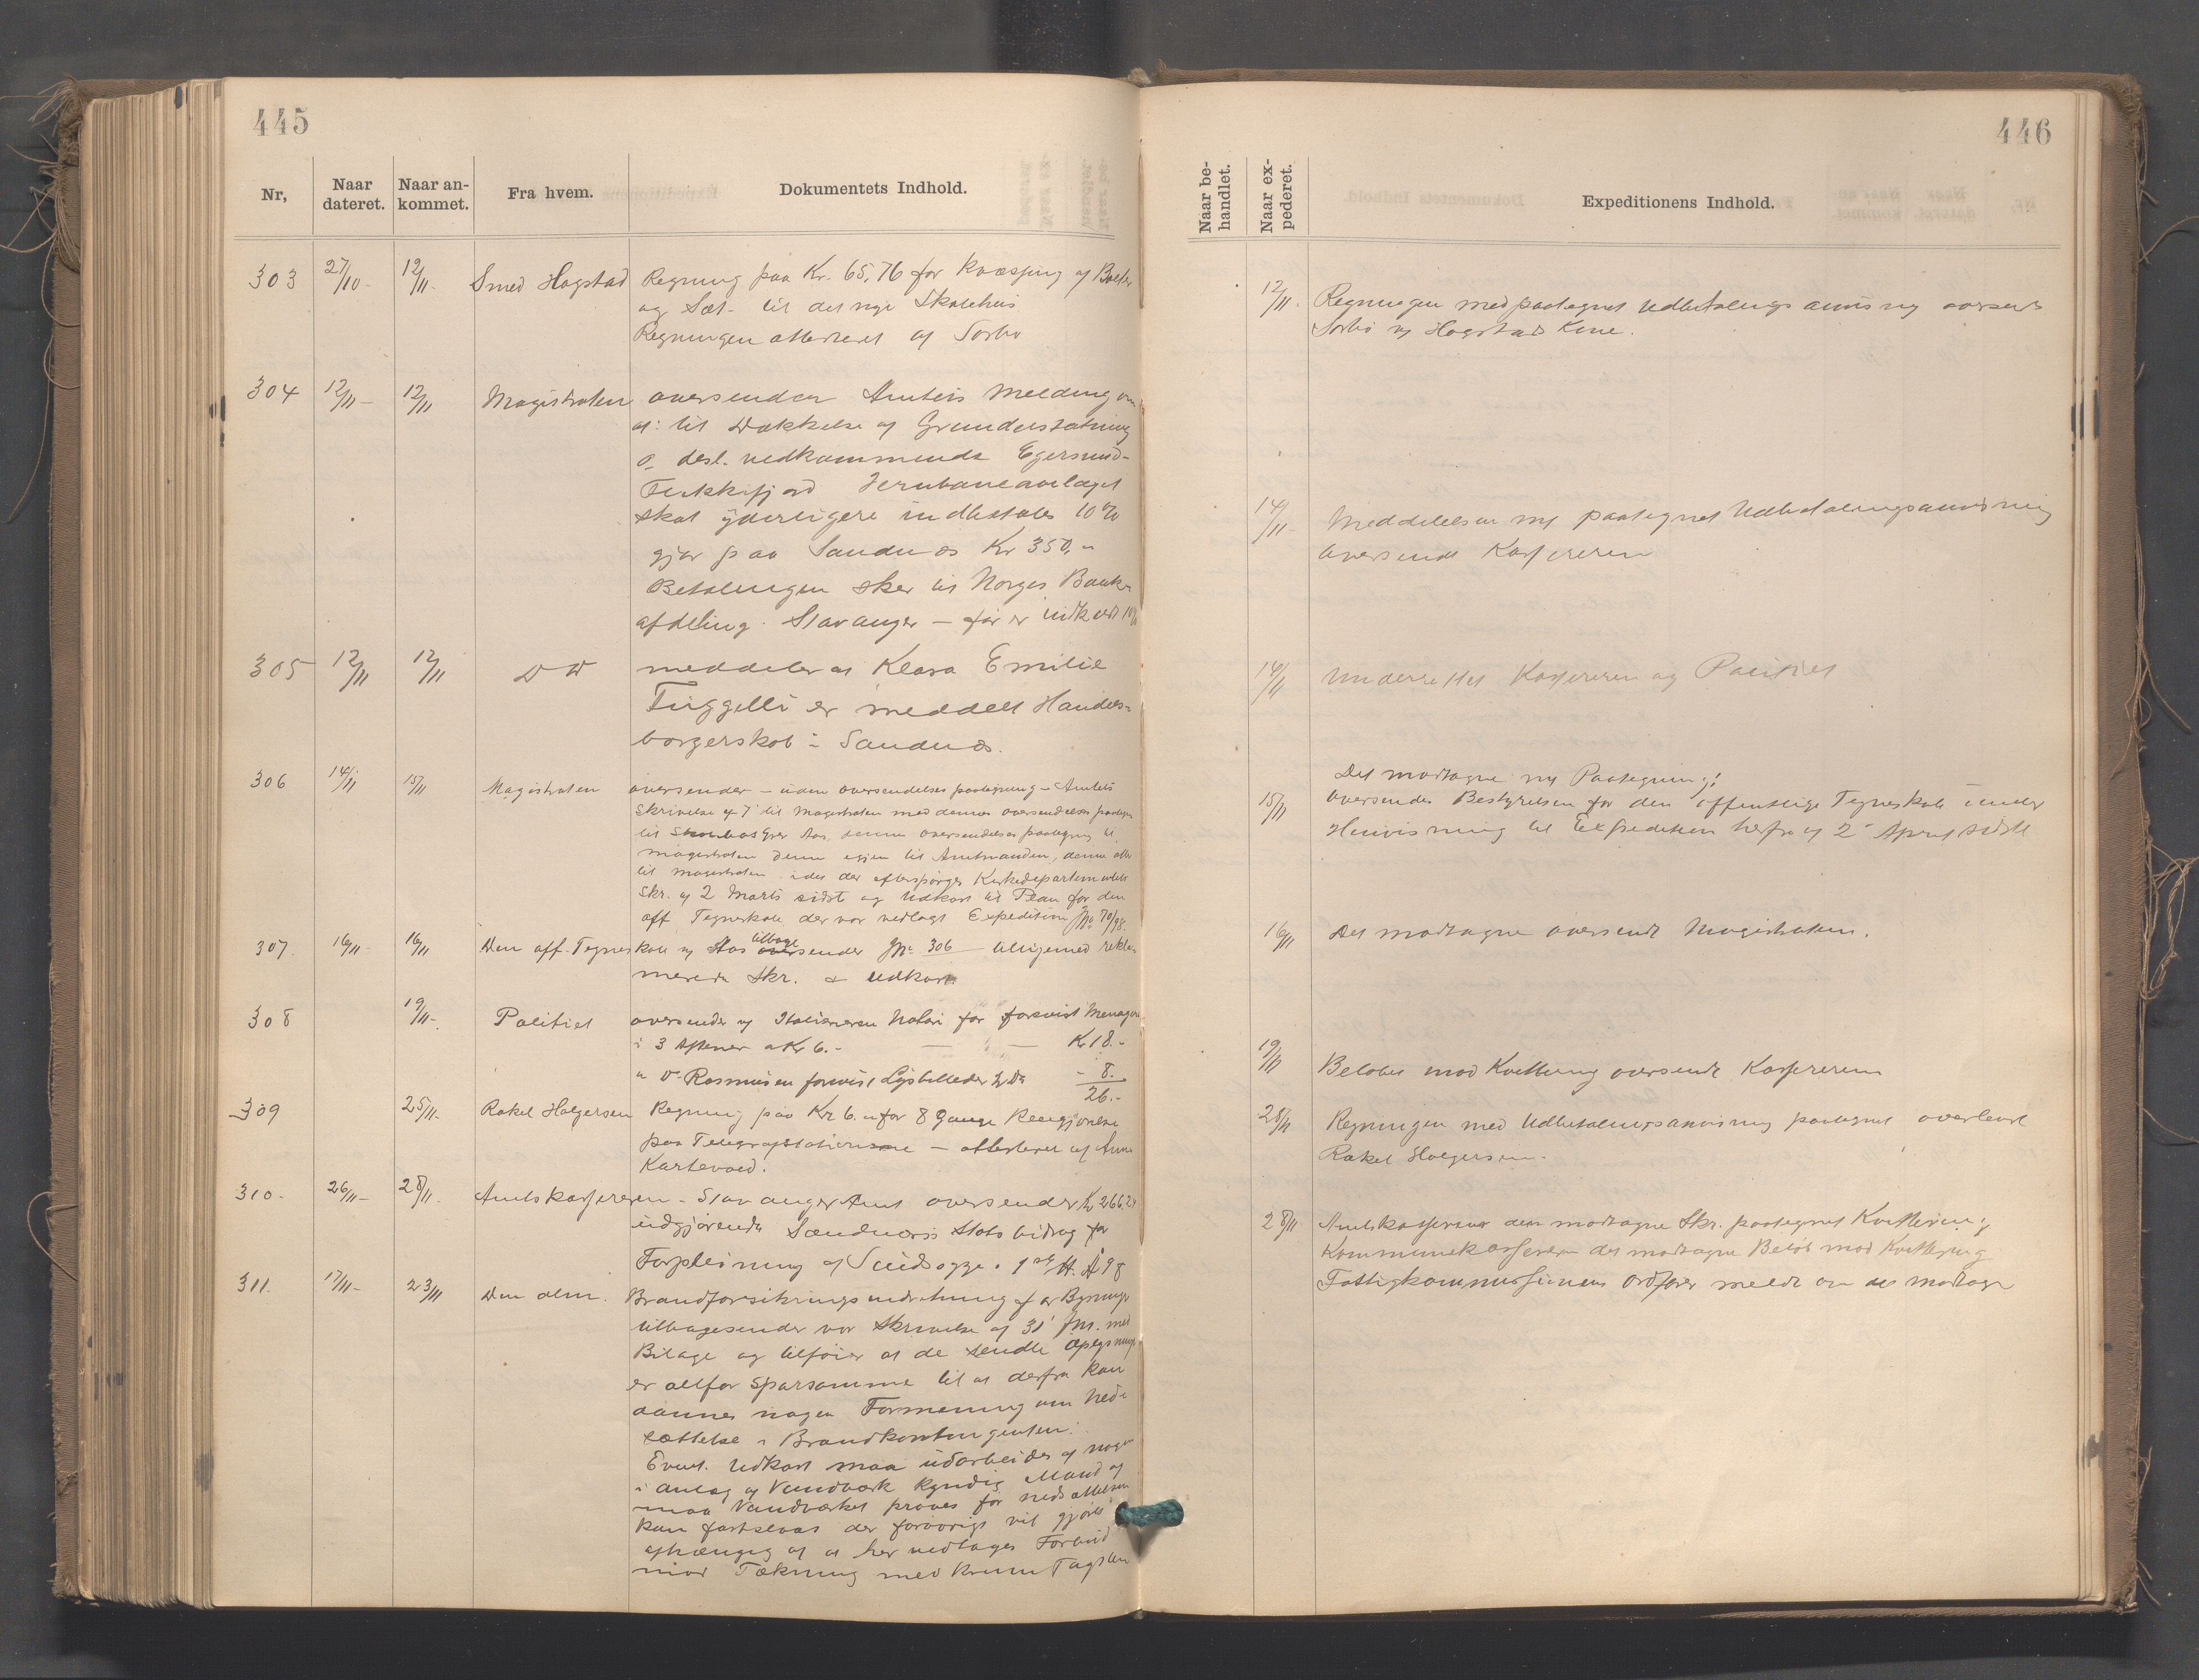 445
Nr,
Naar dateret.
Naar an-kommet.
Fra hvem.
Dokumentets Indhold.
303 27/10- 12/11- Smed Hogstad Regning paa Kr. 65,76 for Kvæsjing af Bolter
og Sæt- til det nye Skolehus
Regningen attesteret af Sorbø
304 12/11- 12/11 Magistraten oversender Amtets Melding om
at til Dækkelse af Grunderstatning
o desl. vedkommende Egersund-
Flekkefjord Jernbaneanlæget
skal yderligere indbetales 10%
gjør paa Sandnæs Kr 350,-
Betalingen sker til Norges Bank-
afdeling Stavanger - før er indkrævt 10%
305 12/11 12/11 D D meddeler at Klara Emilie
Tiggelli er meddelt Handels-
borgerskab i Sandnæs.
306 14/11 15/11 Magistraten oversender - uden oversendelsespaategning - Amtets
Skrivelse af 7' til Magistraten med dennes oversendelses paategn
til Skoles Aas, dennes oversendelsespaategning til
Magistraten denne igjen til Amtmanden, denne atter
til Magistraten idet der efterspørges Kirkedepartementets
Skr. af 2 Marts sidst og Udkast til Plan for den
off Tegneskole der var vedlagt Expedition Jno 70/98.
307 16/11- 16/11 Den off. Tegneskole v Aas tilbagesender Jno 306 - tilligemed rekla-
merede Skr. & Udkast
308 19/11- Politiet oversender af Italieneren Natari for forevist Menageri
i 3 Aftener a Kr 6.- Kr 18.-
" D. Rasmusen forevist Lysbilleder - 8.
26.-
309 25/11- Rakel Holgersen Regning paa Kr 6.- for 8 Gange Reengjørelse
paa Telegrafstationen - attesteret af Anna
Kartevold.
310- 26/11- 28/11- Amtskassereren - Stavanger Amt oversender Kr 266.24
udgjørende Sandnæs's Stats bidrag for
Forpleining af Sindssyge 1ste H. A 98
311. 17/11- 23/11 Den alm. Brandforsikringsindretning for Bygninger
tilbagesender vor Skrivelse af 31' fm. med
Bilage og tilføier at de sendte Oplysninger
er altfor sparsomme til at derfra kan
dannes nogen Formening om Ned-
sættelse i Brandkontingenten.
Event. Udkast maa udarbeides af nogen
i anlæg af Vandværk kyndig Mand og
maa Vandværket prøves før nedsættelsen
kan fastslaaes der forøvrigt vil gjøres
afhængig af at her vedtages Forbud
mod Tækning med krum Tagsten
446
Naar be-handlet.
Naar ex-pederet.
Expeditionens Indhold.
12/11. Regningen med paategnet Udbetalings anvisning oversendt
Sorbø v Hogstads Kone.
14/11- Meddelelsen m paategnet Udbetalingsanvisning
oversendt Kassereren
14/11 Underrettet Kassereren og Politiet
Det modtagne m Paategning:
15/11 Oversendes Bestyrelsen for den offentlige Tegneskole under
Henvisning til Expedition herfra af 2' April sidste
16/11 Det modtagne oversendt Magistraten.
19/11 Beløbet mod Kvittering oversendt Kassereren
25/11 Regningen med Udbetalingsanvisning paategnet overlevt
Rakel Holgersen.
28/11 Amtskassereren den modtagne Skr. paategnet Kvittering
Kommunekassereren det modtagne Beløb mod Kvittering
Fattigkommissionens Ordfører meldt om det modtagne